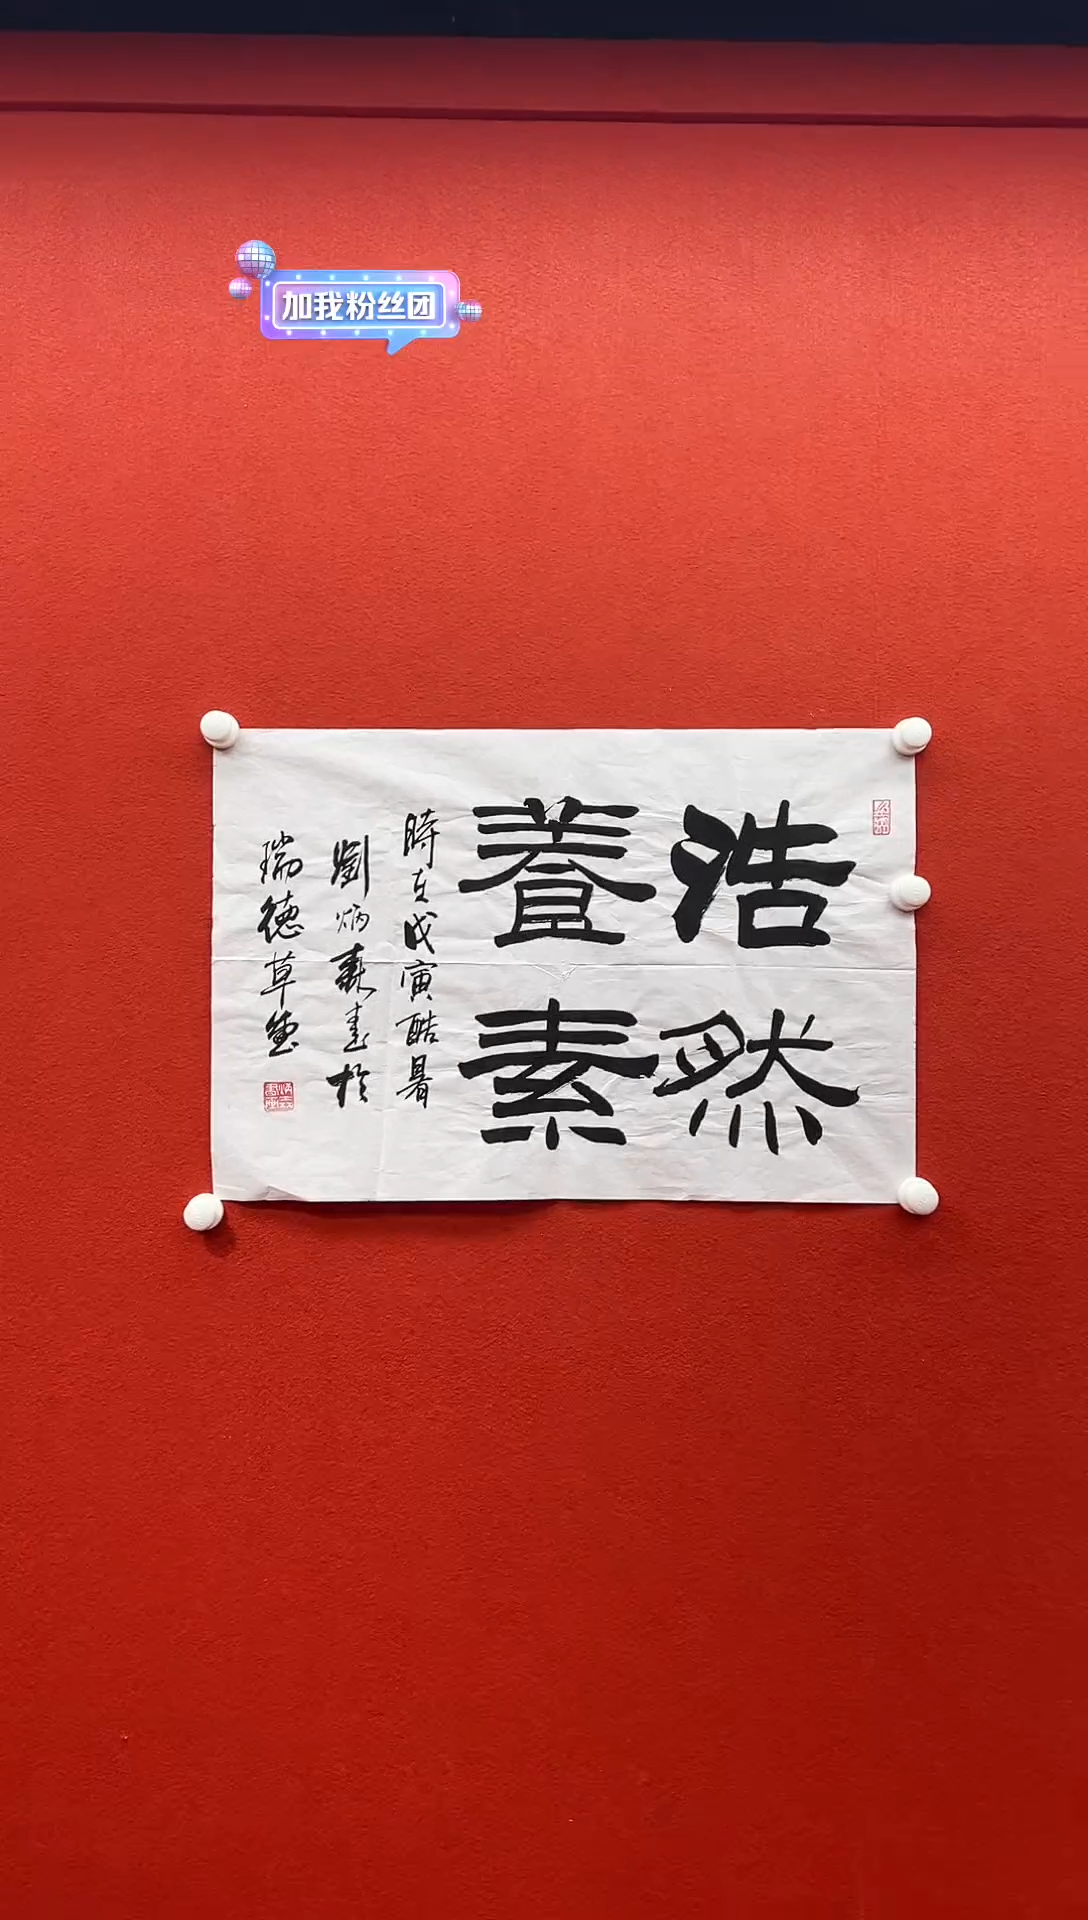 加我粉丝团
浩然
養素
時在戊寅酷暑
劉炳森書於
瑞德草堂